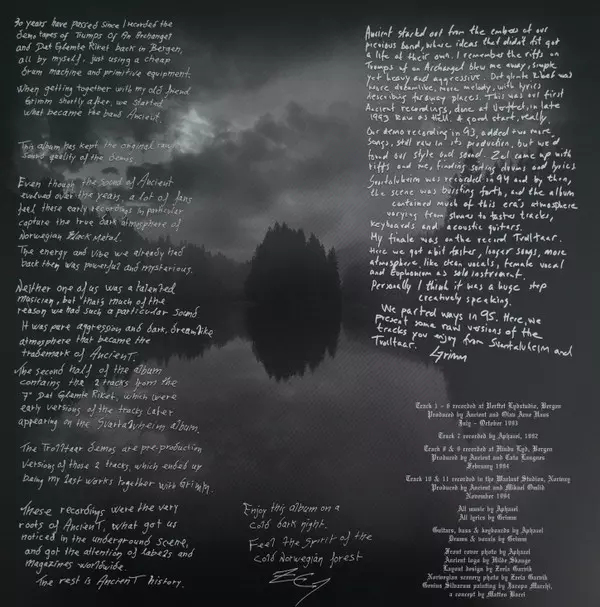 30 years have passed since I recorded the
demo tapes of Trumps Of An Archangel
and Det Glemte Riket back in Bergen,
all by myself, just using a cheap
drum machine and primitive equipment.
When getting together with my old friend
Grimm shortly after, we started
what became the band Ancient.
This album has kept the original raw
sound quality of the demos.
Even though the sound of Ancient
evolved over the years, a lot of fans
feel these early recordings in particular
capture the true dark atmosphere of
Norwegian Black Metal.
The energy and vibe we already had
back then was powerful and mysterious.
Neither one of us was a talented
musician, but that's much of the
reason we had such a particular sound
It was pure aggression and dark, dreamlike
atmosphere that became the
trademark of Ancient.
The second half of the album
contains the 2 tracks from the
7" Det Glemte Riket, which were
early versions of the tracks later
appearing on the Svartalvheim album.
The Trolltaar demos are pre-production
versions of those 2 tracks, which ended up
being my last works together with Grimm.
These recordings were the very
roots of Ancient, what got us
noticed in the underground scene,
and got the attention of labels and
magazines worldwide.
The rest is Ancient history.
Enjoy this album on a
cold dark night.
Feel the spirit of the
cold Norwegian forest
Ancient started out from the embers of our
previous band, where ideas that didn't fit got
a life of their own. I remember the riffs on
Trumps of an Archangel blew me away, simple
yet heavy and aggressive. Det glemte riket was
more dreamlike, more melody, with lyrics
describing faraway places. This was our first
Ancient recordings, done at Verftet, in late
1993 Raw as Hell. A good start, really.
Our demo recording in 93, added two more
songs, still raw in its production, but we'd
found our style and sound. Zel came up with
riffs and me, finding sorting drums and lyrics
Svartalvheim was recorded in 94 and by then,
the scene was bursting forth, and the album
contained much of this era's atmosphere
varying from slower to faster tracks,
keyboards and acoustic guitars.
My finale was on the record Trolltaar.
Here we got a bit faster, longer songs, more
atmosphere like clean vocals, female vocal
and Euphonium as solo instrument.
Personally I think it was a huge step
creatively speaking.
We parted ways in 95. Here, we
present some raw versions of the
tracks you enjoy from Svartalvheim and
Trolltaar.
Grimm
Track 1 - 6 recorded at Verftet Lydstudio, Bergen
Produced by Ancient and Olav Arne Naus
July - October 1993
Track 7 recorded by Aphazel, 1992
Track 8 & 9 recorded at Hindu Lyd, Bergen
Produced by Ancient and Cato Langnes
February 1994
Track 10 & 11 recorded in the Warlust Studios, Norway
Produced by Ancient and Mikael Omlid
November 1994
All music by Aphazel
All lyrics by Grimm
Guitars, bass & keyboards by Aphazel
Drums & vocals by Grimm
Front cover photo by Aphazel
Ancient logo by Hilde Skauge
Layout design by Zerla Garvik
Norwegian scenery photo by Zerla Garvik
Genius Silvarum painting by Jacopo Marchi,
a concept by Matteo Bucci